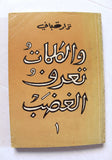 نزار قباني
والكلمات
تعرف
الغضب
١